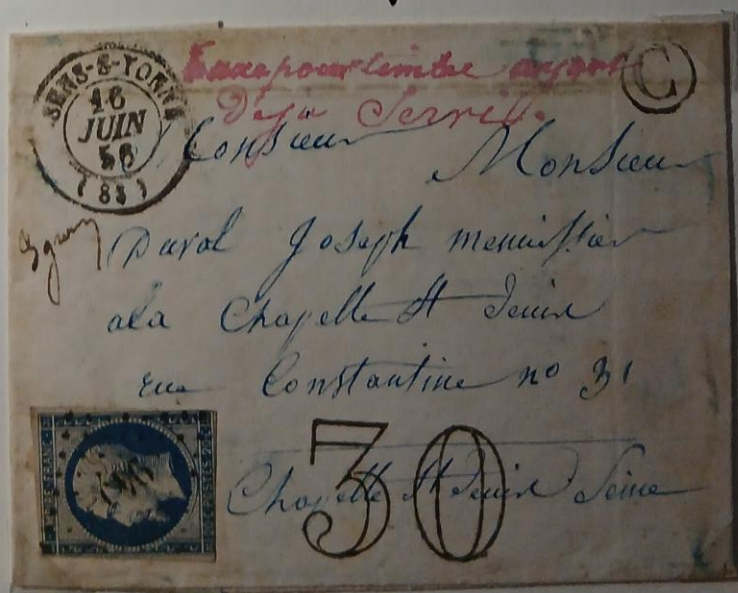 SENS-S-YONNE
16
JUIN
56
(83)
Taxe pour timbre ayant
Déja Servill.
C
Monsieur Monsieur
Joseph menuissier
ala Chapelle St Denix
rue Constantine no 31
30
Chapelle St Denix Seine